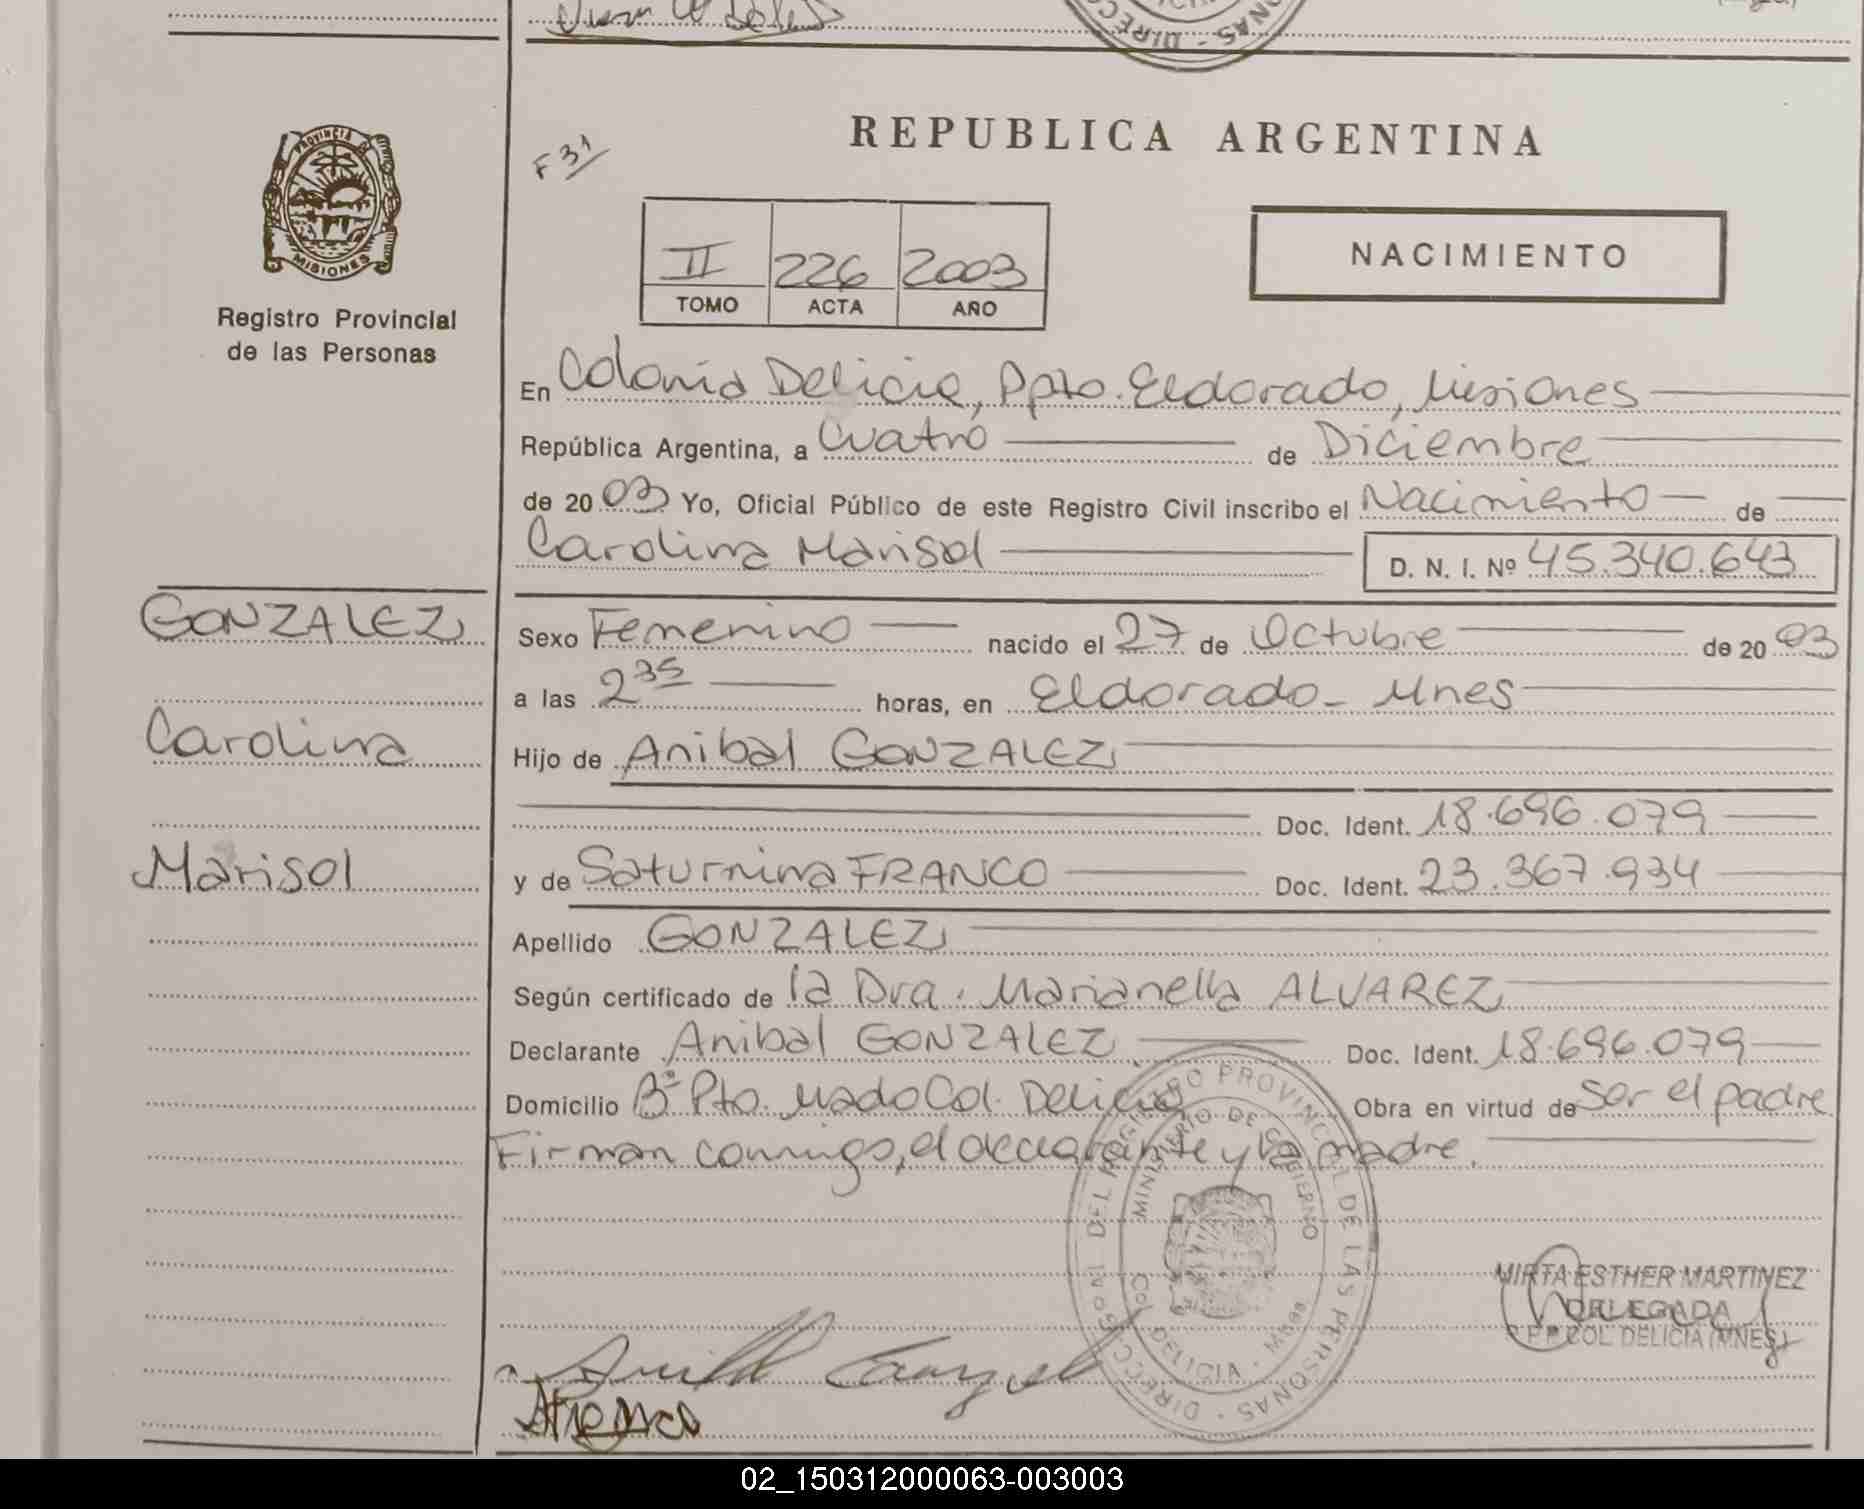 REPUBLICA ARGENTINA
F 31
PROVINCIA DE
MISIONES
Registro Provincial
de las Personas
II 226 2003
TOMO ACTA AÑO
NACIMIENTO
En Colonia Delicia, Dpto. Eldorado, Misiones
República Argentina, a Cuatro de Diciembre
de 2003 Yo, Oficial Público de este Registro Civil inscribo el Nacimiento de
Carolina Marisol D. N. I. Nº 45.340.643
GONZALEZ
Carolina
Marisol
Sexo Femenino nacido el 27 de Octubre de 2003
a las 2 35 horas, en Eldorado - Mnes
Hijo de Anibal GONZALEZ
Doc. Ident. 18.696.079
y de Saturnina FRANCO Doc. Ident. 23.367.934
Apellido GONZALEZ
Según certificado de la Dra. Marianella ALVAREZ
Declarante Anibal GONZALEZ Doc. Ident. 18.696.079
Domicilio Bº Pto. Mado Col. Delicia Obra en virtud de Ser el padre
Firman conmigo, el declarante y la madre.
DIRECC. GRAL. DEL REGISTRO PROVINCIAL DE LAS PERSONAS
MINISTERIO DE GOBIERNO
Col. DELICIA - Mnes
MIRTA ESTHER MARTINEZ
DELEGADA
COL. DELICIA (MNES)
02_150312000063-003003